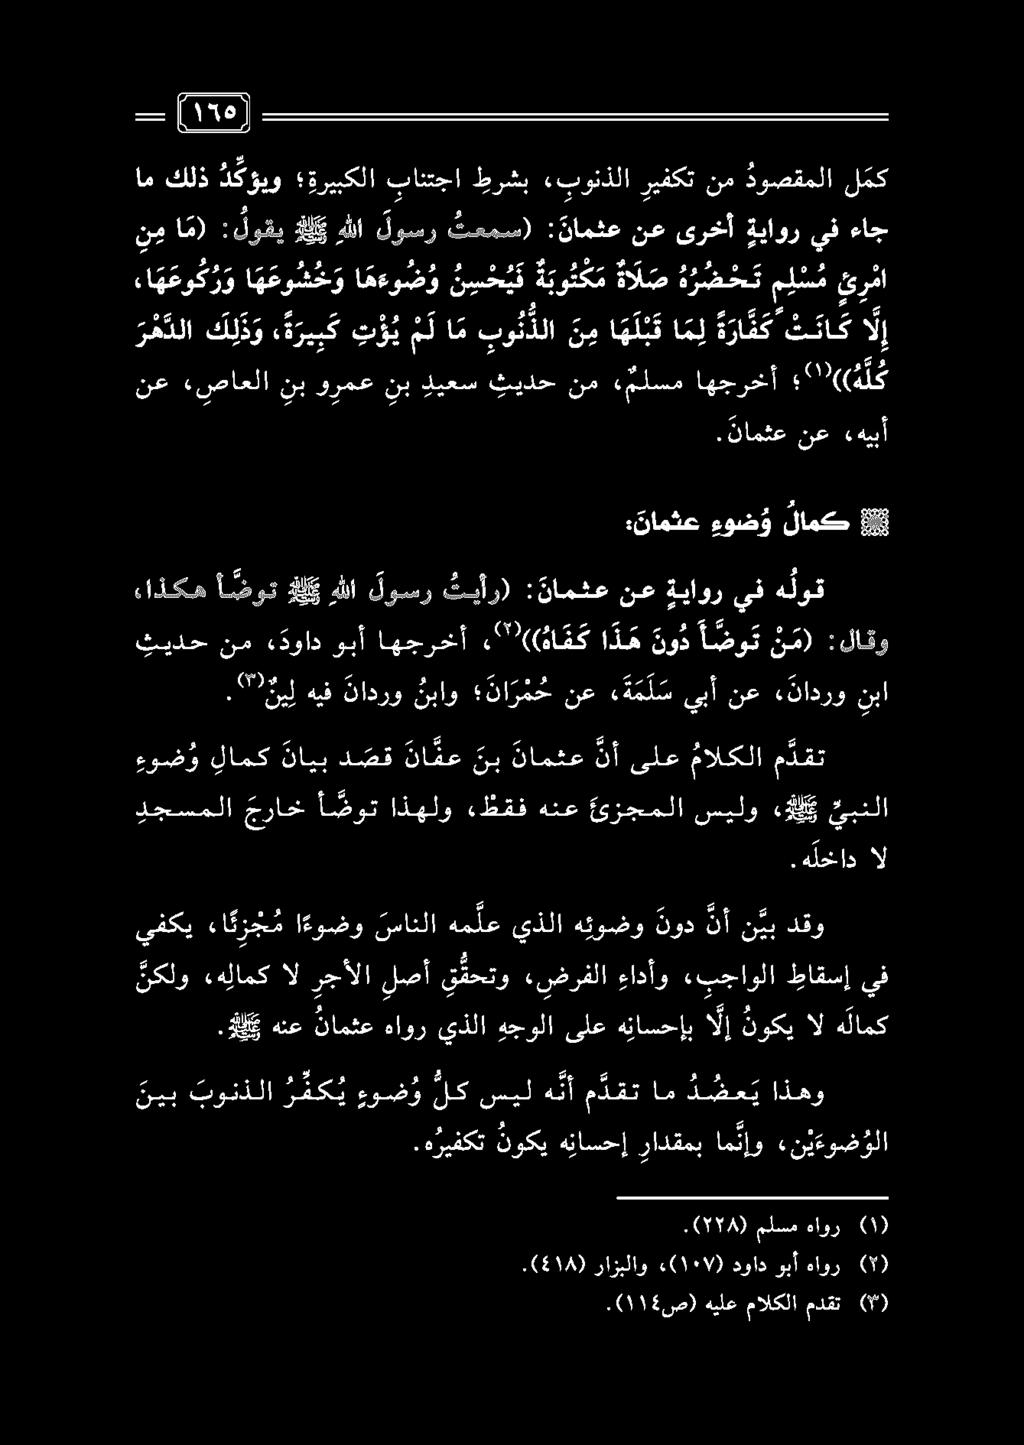 ١٦٥
كمَل المقصودُ من تكفيرِ الذنوبِ، بشرطِ اجتنابِ الكبيرةِ؛ ويؤكِّدُ ذلك ما
جاء في روايةٍ أخرى عن عثمانَ: (سمعتُ رسولَ اللهِ ﷺ يقولُ: (مَا مِنِ
امْرِئٍ مُسْلِمٍ تَحْضُرُهُ صَلَاةٌ مَكْتُوبَةٌ فَيُحْسِنُ وُضُوءَهَا وَخُشُوعَهَا وَرُكُوعَهَا،
إِلَّا كَانَتْ كَفَّارَةً لِمَا قَبْلَهَا مِنَ الذُّنُوبِ مَا لَمْ يُؤْتِ كَبِيرَةً، وَذَلِكَ الدَّهْرَ
كُلَّهُ))(١)؛ أخرجها مسلمٌ، من حديثِ سعيدِ بنِ عمرِو بنِ العاصِ، عن
أبيه، عن عثمانَ.
كمالُ وُضوءِ عثمانَ:
قولُه في روايةٍ عن عثمانَ: (رأيتُ رسولَ اللهِ ﷺ توضَّأ هكذا،
وقال: (مَنْ تَوَضَّأَ دُونَ هَذَا كَفَاهُ))(٢)، أخرجها أبو داودَ، من حديثِ
ابنِ وردانَ، عن أبي سَلَمَةَ، عن حُمْرَانَ؛ وابنُ وردانَ فيه لِينٌ(٣).
تقدَّم الكلامُ على أنَّ عثمانَ بنَ عفَّانَ قصَد بيانَ كمالِ وُضوءِ
النبيِّ ﷺ، وليس المجزئَ عنه فقطْ، ولهذا توضَّأ خارجَ المسجدِ
لا داخلَه.
وقد بيَّن أنَّ دونَ وضوئِه الذي علَّمه الناسَ وضوءًا مُجْزِئًا، يكفي
في إسقاطِ الواجبِ، وأداءِ الفرضِ، وتحقُّقِ أصلِ الأجرِ لا كمالِه، ولكنَّ
كمالَه لا يكونُ إلَّا بإحسانِه على الوجهِ الذي رواه عثمانُ عنه ﷺ.
وهذا يَعضُدُ ما تقدَّم أنَّه ليس كلُّ وُضوءٍ يُكفِّرُ الذنوبَ بينَ
الوُضوءَيْنِ، وإنَّما بمقدارِ إحسانِه يكونُ تكفيرُه.
(١) رواه مسلم (٢٢٨).
(٢) رواه أبو داود (١٠٧)، والبزار (٤١٨).
(٣) تقدم الكلام عليه (ص١١٤).